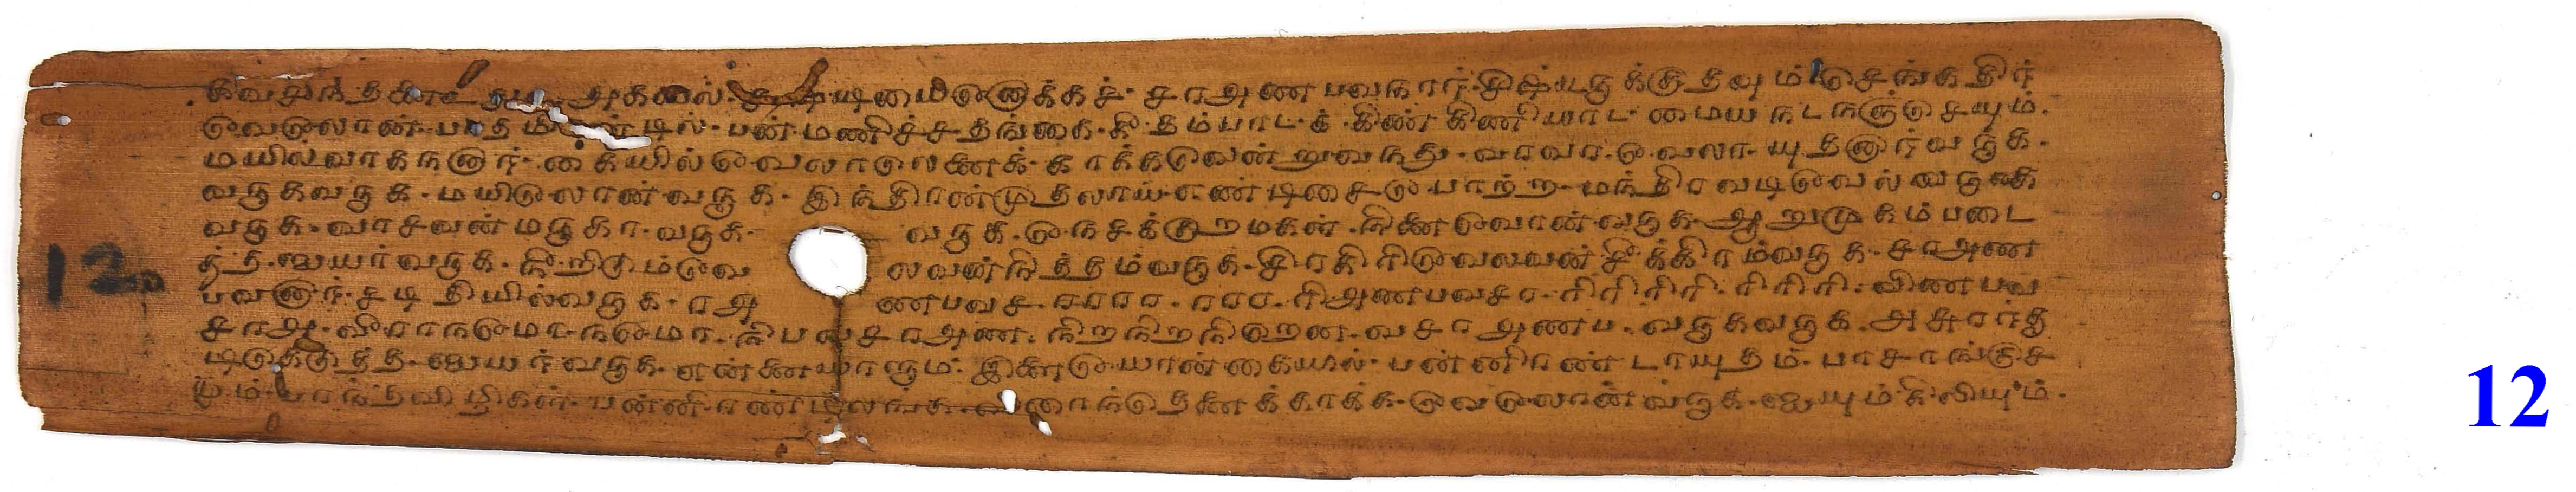 சரஅண பவனார். சிஷ்டருக்குதவும் செங்கதிர்
வேலோன். பாதமிரண்டில். பன்மணிச்சதங்கை. கீதம்பாடக். கிண்கிணியாட. மையநடநஞ்செயும்.
மயில்வாகநனார். கையில்வேலாலேனைக். காக்கவேன்றுவந்து. வரவர. வேலாயுதனார்வருக.
வருகவருக. மயிலோன்வருக. இந்திரன்முதலாய். எண்டிசைபோற்ற. மந்திரவடிவேல் வருக
வருக. வாசவன்மருகா. வருக. வருக. நேசக்குறமகள். நினைவோன்வருக. ஆறுமுகம்படை
த்த. ஐயர்வருக. நீறிடும்வே லவன்நித்தம்வருக. சிரகிரிவேலவன் சீக்கிரம்வருக. சரஅண
பவனார். சடிதியில்வருக. ரஅ ணபவச. ரரரர. ரரர. ரிஅணபவசர. ரிரிரிரி. ரிரிரி. விணபவ
சரஅ. வீராநமோ. நமோ. நிபவசரஅண. நிறநிறநிறேன. வசரஅணப. வருகவருக. அசுரர்கு
டிகேடுத்த. ஐயர்வருக. என்னையாளும். இளையோன்கையில். பன்னிரண்டாயுதம். பாசாங்குச
மும். பரந்தவிழிகள். பன்னிரண்டிலங்க. விரைந்தேனைக்காக்க. வேலோன்வருக. ஐயும்கிலியும்.
12
12